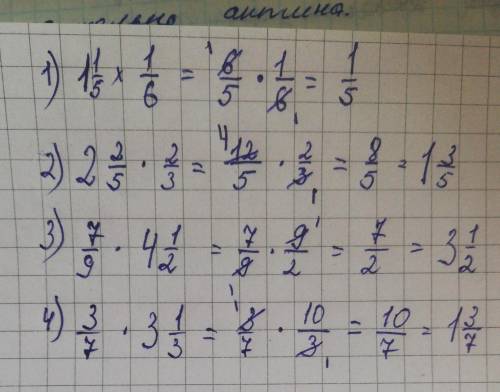 антина.
1) 1 1/5 × 1/6 = 6/5 · 1/6 = 1/5
2) 2 2/5 · 2/3 = 12/5 · 2/3 = 8/5 = 1 3/5
3) 7/9 · 4 1/2 = 7/9 · 9/2 = 7/2 = 3 1/2
4) 3/7 · 3 1/3 = 3/7 · 10/3 = 10/7 = 1 3/7